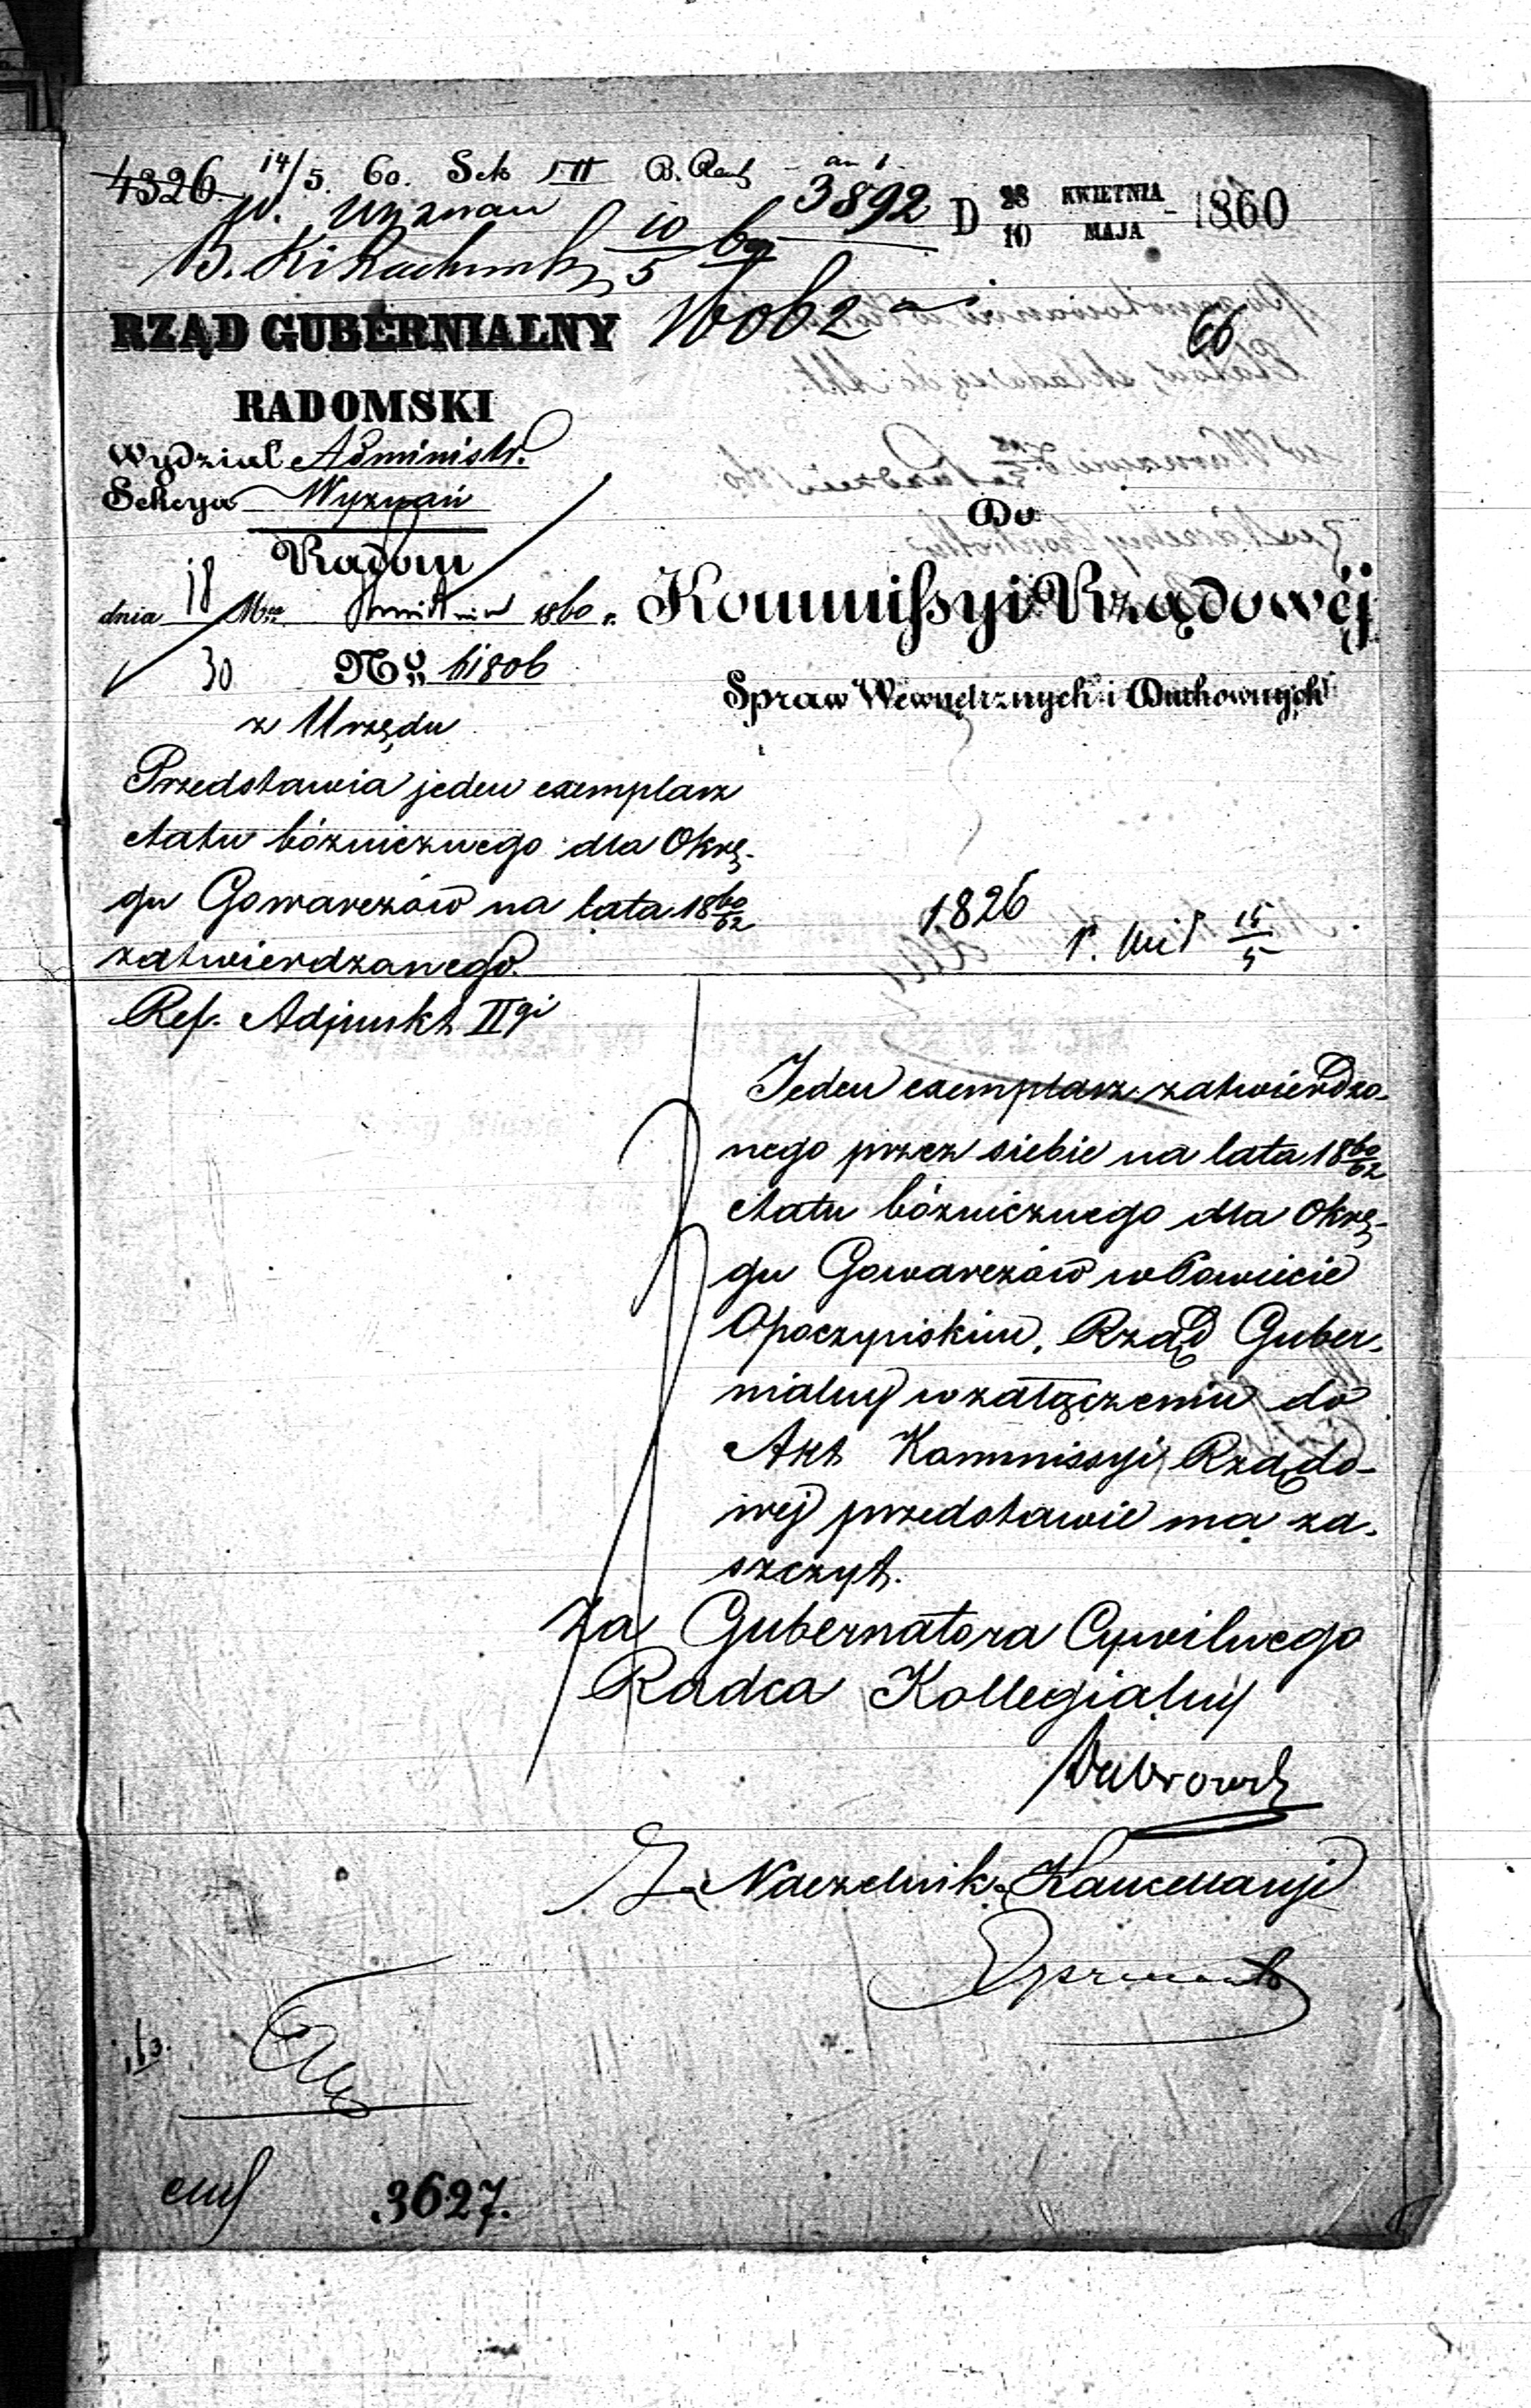 4326 14/5 60. B. 3892 D 28 KWIETNIA 1860
W. Wyznań 10 MAJA
B. 10/5 60
66
RZĄD GUBERNIALNY
RADOMSKI
Wydział Administr.
Sekcya Wyznań
Radom
dnia 18 Kwietnia 1860 r.
30 No 61806
z Urzędu
Przedstawia jeden exemplarz
etatu bóżnicznego dla Okrę-
gu Gowarczów na lata 1860/62
zatwierdzanego.
Ref. Adjunkt IIgi
Do
Kommissyi Rządowéj
Spraw Wewnętrznych i Duchownych
1826
15/5
Jeden exemplarz zatwierdzo-
nego przez siebie na lata 1860/62
etatu bóżnicznego dla Okrę-
gu Gowarczów w Powiecie
Opoczyńskim, Rząd Guber-
nialny w załączeniu do
Akt Kommissyi Rządo-
wej przedstawić ma za-
szczyt.
Za Gubernatora Cywilnego
Radca Kollegialny
Za Naczelnika Kancellaryi
3627.